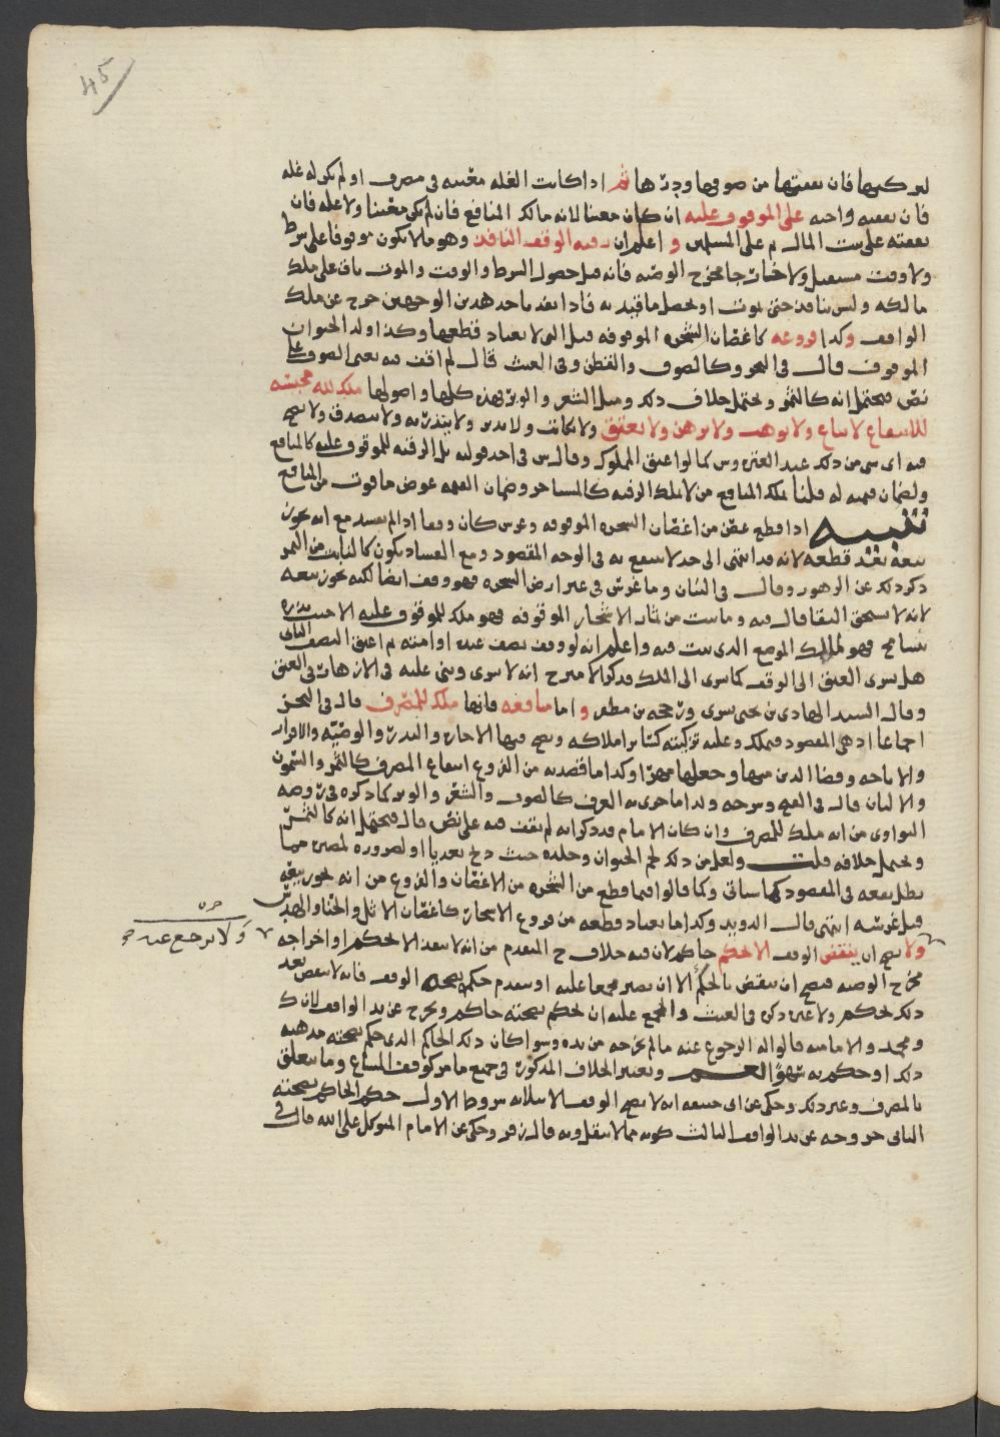 45
فان نفقتها من صوفها ودرها ثم اذا كانت الغله معينه فى مصرف او لم يكن له غله
فان نفقته واجبه على الموقوف عليه ان كان معينا لانه مالك المنافع فان لم يكن معينا ولا غله فان
نفقته على بيت المال ثم على المسلمين و اعلم ان رقبه الوقف النافذ وهو ما لا يكون موقوفا على شرط
ولا وقت مستقبل ولا خارجا مخرج الوصيه فانه قبل حصول الشرط والوقت والموت باق على ملك
مالكه وليس بنافذ حتى يموت او يحصل ما قيد به فاذا نفذ باحد هذين الوجهين خرج عن ملك
الواقف وكذا فروعه كاغصان الشجره الموقوفه قبل ان يعتاد قطعها وكذا اولاد الحيوان
الموقوف قال فى البحر وكالصوف والقطن وفى الغيث قال لم اقف فيه يعنى الصوف على
نص فيحتمل انه كالثمر ويحتمل خلاف ذلك ومثل الشعر والوبر فهذه كلها واصولها ملك لله محبسه
للانتفاع لا تباع ولا توهب ولا ترهن ولا تعتق ولا تكاتب ولا تدبر ولا ينذر به ولا يتصدق ولا يصح
فيه اى شى من ذلك عند العتره وش كما لو اعتق المملوك وقال ش فى احد قوليه بل الرقبه للموقوف عليه كالمنافع
ولضمان قيمته له قلنا ملك المنافع من لا يملك الرقبه كالمستاجر وضمان القيمه عوض ما فوت من المنافع
تنبيه اذا قطع غصن من اغصان الشجره الموقوفه وغرس كان وقفا اذا لم يفسد مع انه يجوز
بيعه بعد قطعه لانه قد انتهى الى حد لا ينتفع به فى الوجه المقصود ومع الفساد يكون كالنابت من الثمر
ذكر ذلك عن الزهور وقال فى البيان وما غرس فى غير ارض الشجره فهو وقف ايضا لكنه يجوز بيعه
لانه لا يستحق البقا قال فيه وما نبت من ثمار الاشجار الموقوفه فهو ملك للموقوف عليه الا حيث بذره
يتسامح فهو لمالك الموضع الذى ينبت فيه واعلم انه لو وقف نصف عبده او امته ثم اعتق النصف الثانى
هل يسرى العتق الى الوقف كما يسرى الى الملك فذكر الامير ح انه لا يسرى وبنى عليه فى الازهار فى العتق
وقال السيد الهادى بن يحيى يسرى ورجحه بن مظفر و اما منافعه فانها ملك للمصرف قال فى البحر
اجماعا اذ هى المقصود فيملك وعليه تزكيته كسائر املاكه ويصح فيها الاجاره والنذر والوصيه والاقرار
والاباحه وقضا الدين منها وجعلها مهرا وكذا ما قصد به من الفروع انتفاع المصرف كالثمر والسمون
والالبان قال فى الغيث وشرحه وكذا ما جرى به العرف كالصوف والشعر والوبر كما ذكره فى روضه
النواوى من انه ملك للمصرف وان كان الامام قد ذكر انه لم يقف فيه على نص قال فيحتمل انه كالثمر
ويحتمل خلافه قلت ولعل من ذلك لحم الحيوان وجلده حيث ذبح تعديا او لضروره لمصيره مما
بطل نفعه فى المقصود كما سياتى وكما قالوا فيما قطع من الشجره من الاغصان والفروع من انه يجوز بيعه
قبل غرسه انتهى قال الدويد وكذا ما يعتاد قطعه من فروع الاشجار كاغصان الاثل والحنا والهدس
ولا يصح ان ينقض الوقف الا بحكم حاكم لان فيه خلاف ح المتقدم من انه لا ينفذ الا بحكم او اخراجه
ولا يرجع عنه صح
مخرج الوصيه فيصح ان ينقض بالحكم الا ان يصير مجمعا عليه او يتقدم حكم بصحه الوقف فانه لا ينقض بعد
ذلك بحكم ولا غيره ذكره فى الغيث والمجمع عليه ان يحكم بصحته حاكم ويخرج عن يد الواقف لان ك
ومحمد والاماميه قالوا له الرجوع عنه ما لم يخرجه من يده وسوا كان ذلك الحاكم الذى حكم بصحته مذهبه
ذلك او حكم به سهوا نعم ويعتبر الخلاف المذكور فى جميع ما مر كوقف المشاع وما يتعلق
بالمصرف وغير ذلك وحكى عن ابى حنيفه انه لا يصح الوقف الا بثلاثه شروط الاول حكم الحاكم بصحته
الثانى خروجه عن يد الواقف الثالث كونه مما لا ينقل وبه قال زفر وحكى عن الامام المتوكل على الله قال فى